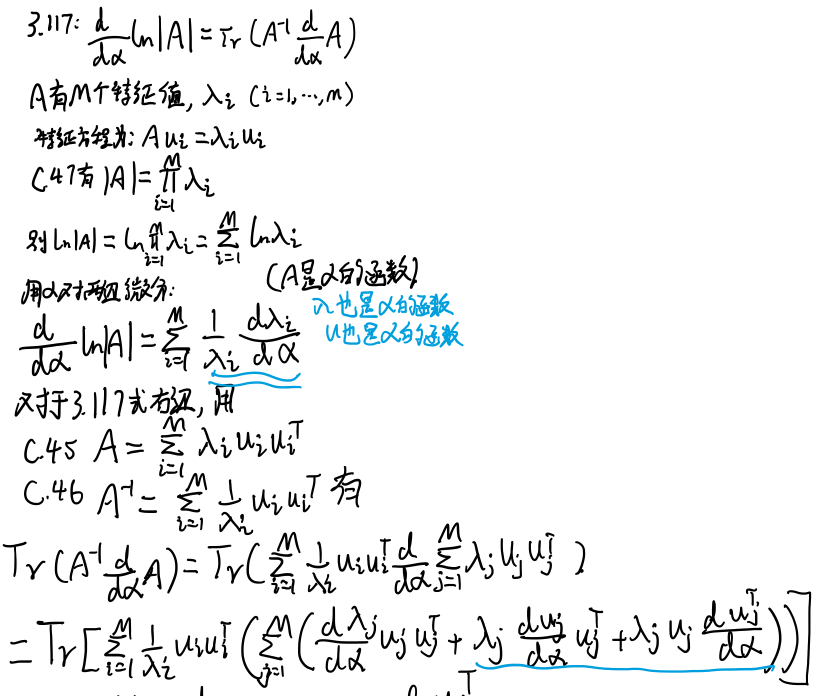 3.117: d/dα ln|A| = Tr(A⁻¹ d/dα A)
A有M个特征值, λi (i=1,…,m)
特征方程为: A ui = λi ui
C.47有 |A| = ∏_{i=1}^{M} λi
则 ln|A| = ln∏_{i=1}^{M} λi = Σ_{i=1}^{M} lnλi
用α对两边微分: (A是α的函数)
λ也是α的函数
u也是α的函数
d/dα ln|A| = Σ_{i=1}^{M} 1/λi dλi/dα
对于3.117式右边, 用
C.45 A = Σ_{i=1}^{M} λi ui ui^T
C.46 A⁻¹ = Σ_{i=1}^{M} 1/λi ui ui^T 有
Tr(A⁻¹ d/dα A) = Tr(Σ_{i=1}^{M} 1/λi ui ui^T d/dα Σ_{j=1}^{M} λj uj uj^T )
= Tr[Σ_{i=1}^{M} 1/λi ui ui^T (Σ_{j=1}^{M} (dλj/dα uj uj^T + λj duj/dα uj^T + λj uj duj^T/dα))]